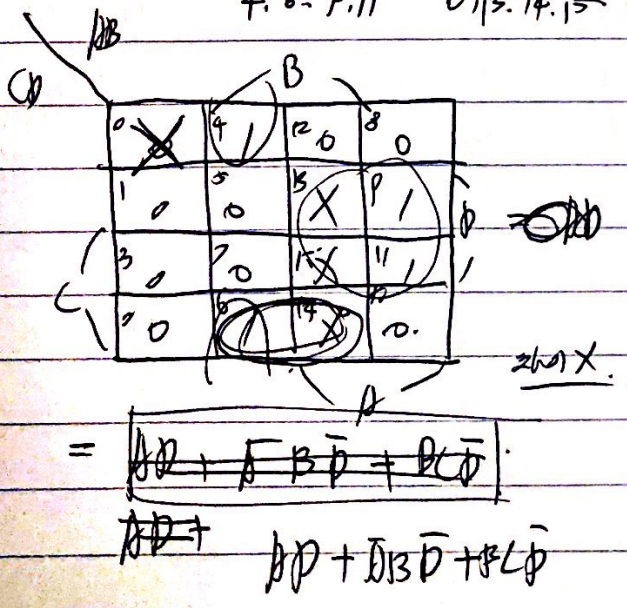 4. 6. 9. 11 0, 13. 14. 15
AB
CD
B
0 X 4 1 12 0 8 0
1 0 5 0 13 X 9 1 D
3 0 7 0 15 X 11 1
C
2 0 6 1 14 X 10 0.
A
X.
= AD + A̅BD̅ + BCD̅
AD +
AD + A̅BD̅ + BCD̅